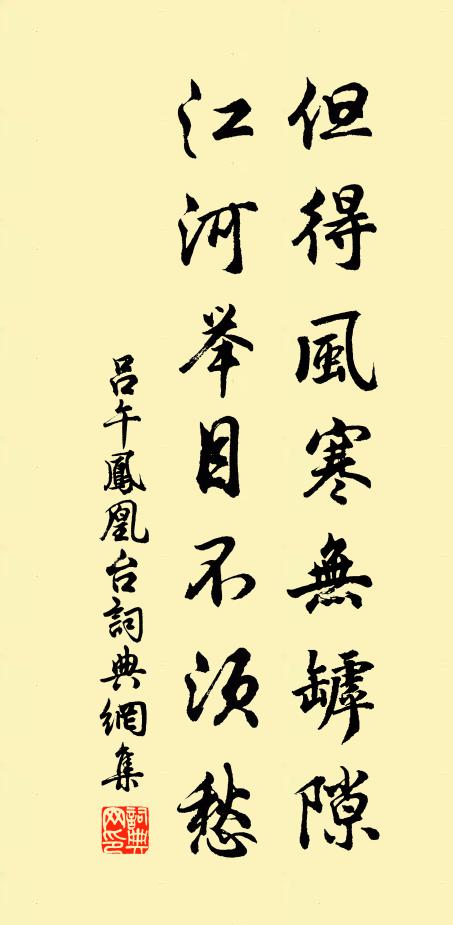 但得風寒無罅隙
江河举目不須愁
吕午鳳凰台詞典網集
詞典网印